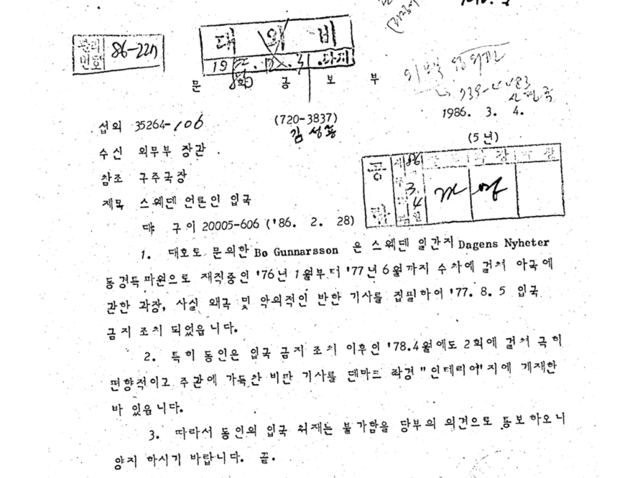 분리
번호 86-227
대 외 비
문 화 공 보 부
섭외 35264-106 (720-3837) 1986. 3. 4.
수신 외무부 장관 (5년)
참조 구주국장
제목 스웨덴 언론인 입국
대 구이 20005-606 ('86. 2. 28)
1. 대호로 문의한 Bo Gunnarsson 은 스웨덴 일간지 Dagens Nyheter
동경특파원으로 재직중인 '76년 1월부터 '77년 6월까지 수차에 걸쳐 아국에
관한 과장, 사실 왜곡 및 악의적인 반한 기사를 집필하여 '77.8.5 입국
금지 조치 되었읍니다.
2. 특히 동인은 입국 금지 조치 이후인 '78.4월에도 2회에 걸쳐 극히
편향적이고 주관에 가득찬 비판 기사를 덴마크 좌경 "인테리어"지에 게재한
바 있읍니다.
3. 따라서 동인의 입국 취재는 불가함을 당부의 의견으로 통보 하오니
양지 하시기 바랍니다. 끝.